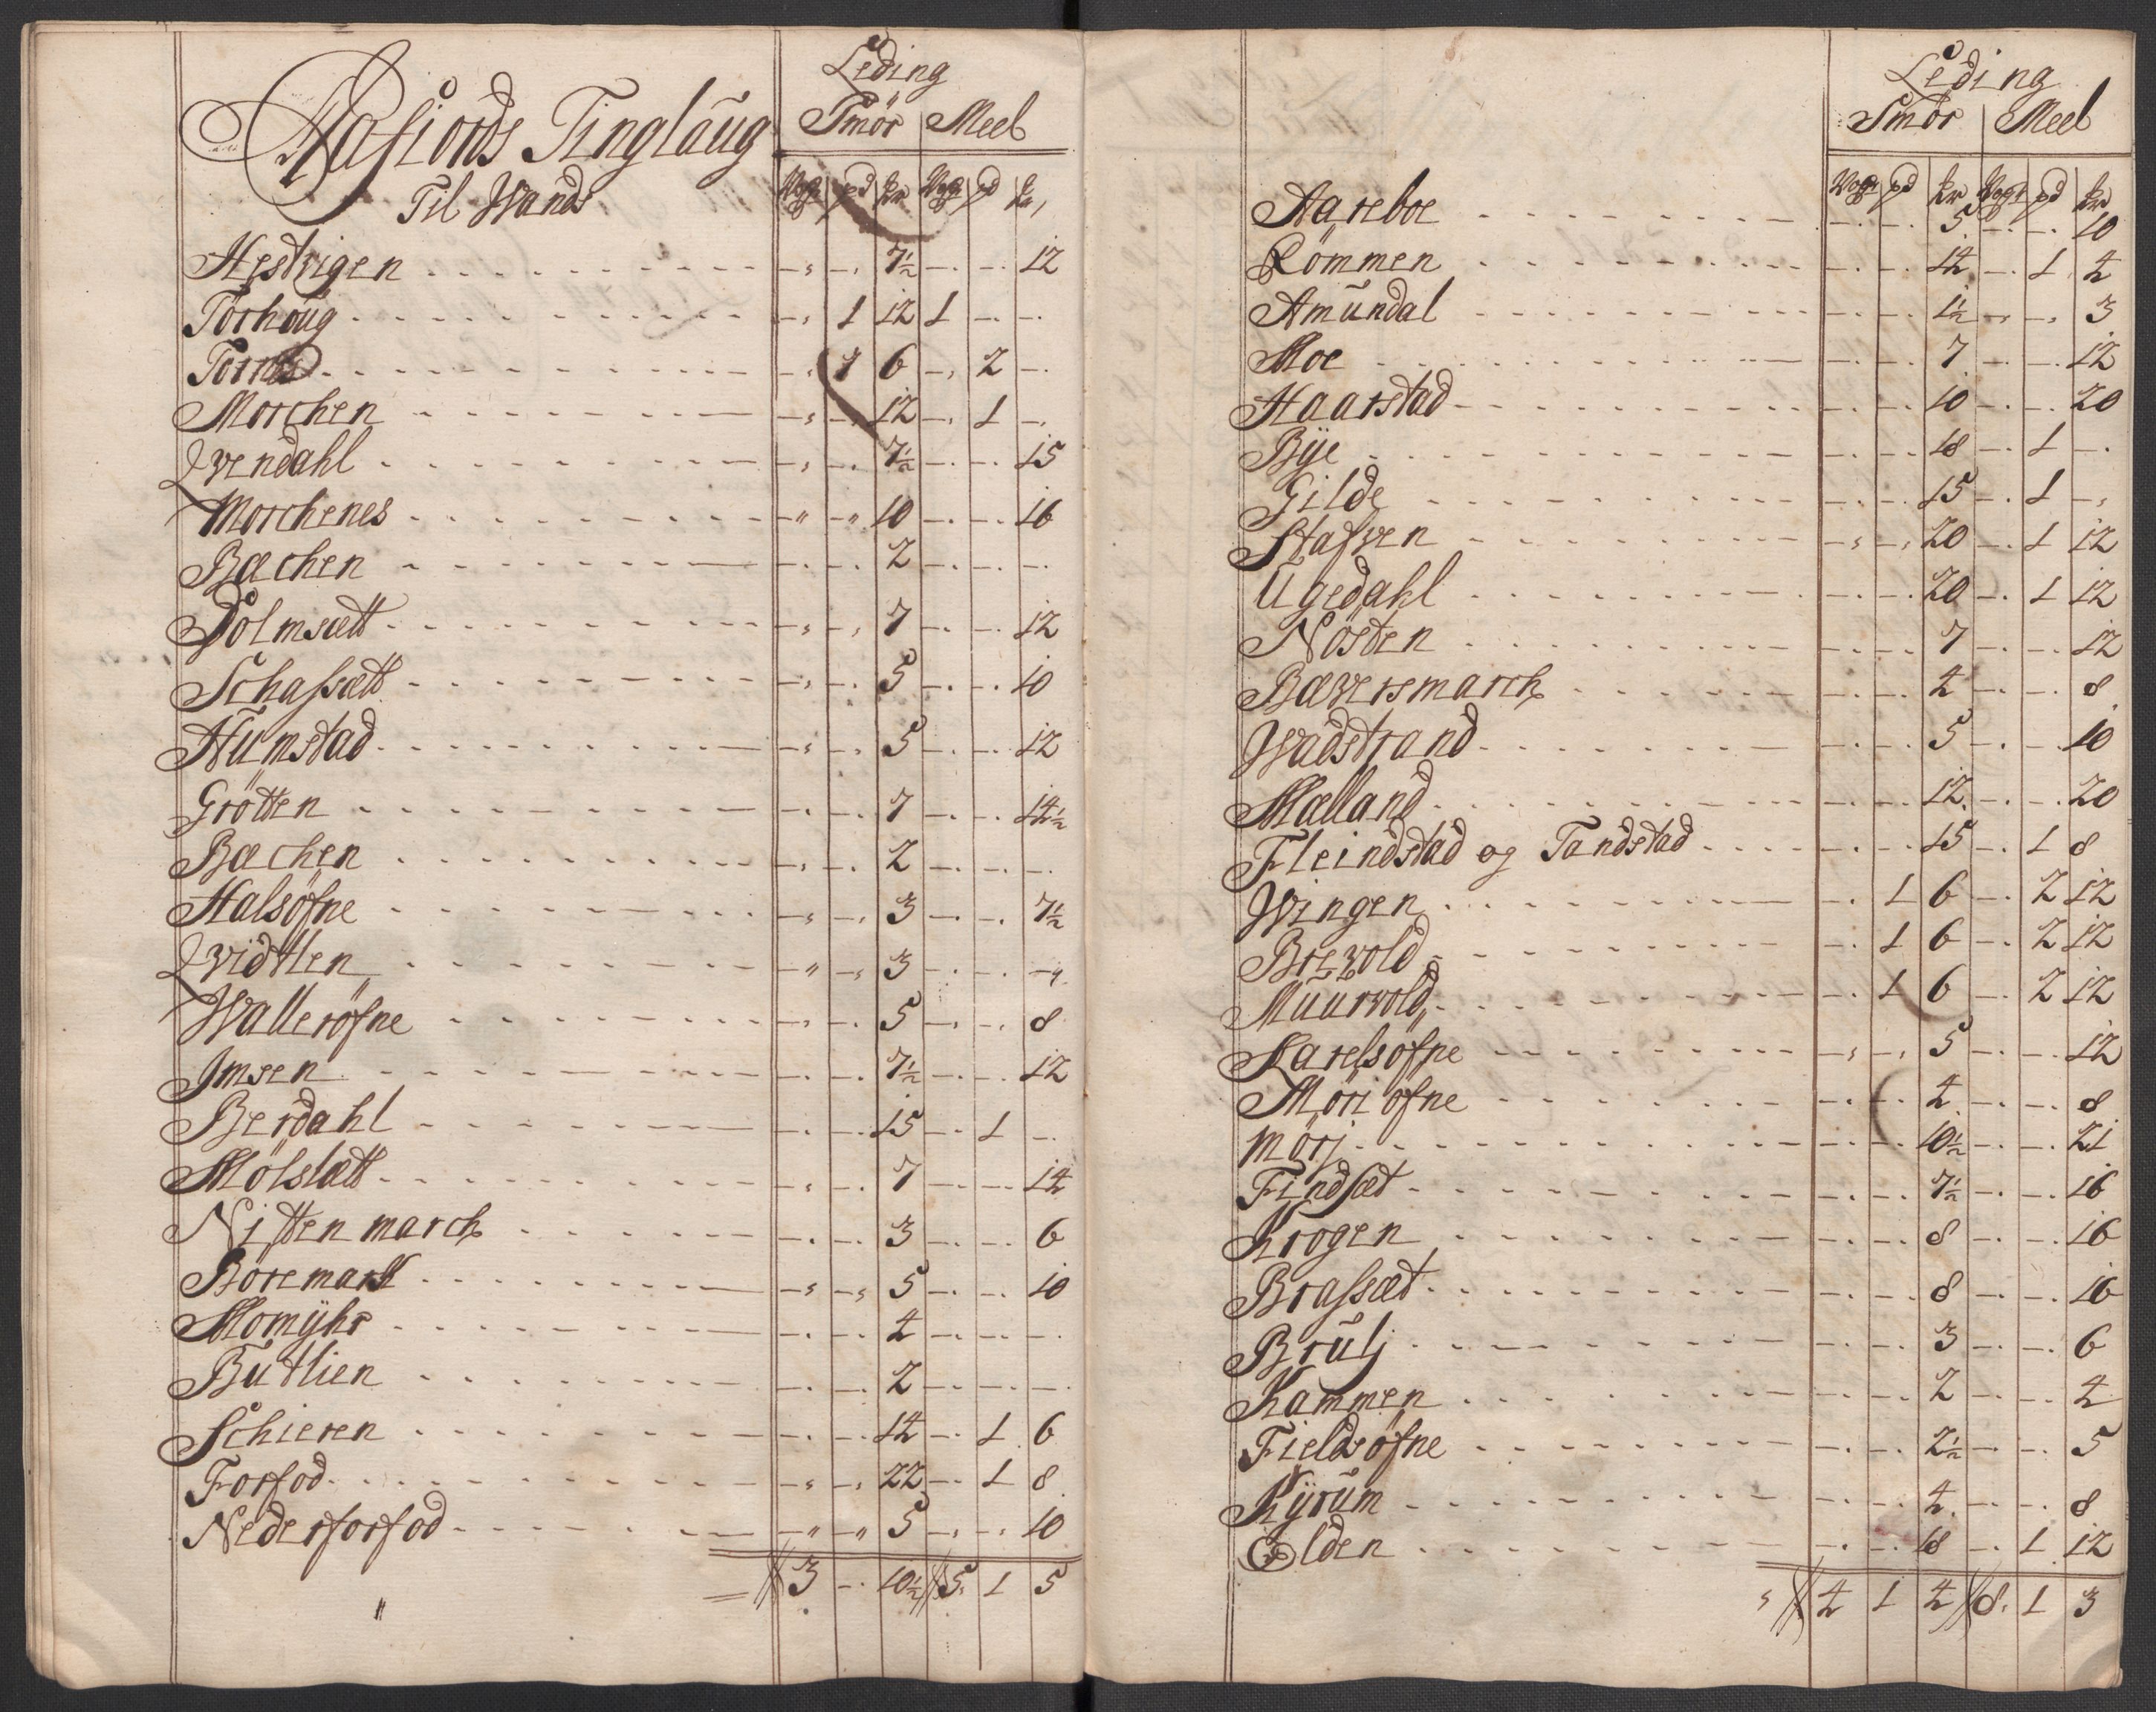 Aafiords Tinglaug
Til Wands
Leding
Smör Meel
Wog pd kr Wog pd kr
Hestvigen - - 7½ - - 12
Törhoüg - 1 12 1 - -
Törnes - 1 6 - 2 -
Morchen - - 12 - 1 -
Qvendahl - - 7½ - - 15
Morchenes - - 10 - - 16
Bæchen - - 2 - - -
Dolmsætt - - 7 - - 12
Schafsætt - - 5 - - 10
Humstad - - 5 - - 12
Grötten - - 7 - - 14½
Bæchen - - 2 - - -
Halsöfne - - 3 - - 7½
Qvidtlen - - 3 - - -
Walleröfne - - 5 - - 8
Imsen - - 7½ - - 12
Berdahl - - 15 - 1 -
Mölslætt - - 7 - - 14
Nitten march - - 3 - - 6
Böremark - - 5 - - 10
Momÿhr - - 4 - - -
Butlien - - 2 - - -
Schieren - - 14 - 1 6
Forfod - - 22 - 1 8
Nederforfod - - 5 - - 10
3 - 10½ 5 1 5
Leding
Smör Meel
Wog pd kr Wog pd kr
Aareboe - - 5 - - 10
Römmen - - 14 - 1 4
Amündal - - 1½ - - 3
Moe - - 7 - - 12
Haarstad - - 10 - - 20
Bÿe - - 18 - 1 -
Gilde - - 15 - 1 -
Stafven - - 20 - 1 12
Ugedahl - - 20 - 1 12
Nösten - - 7 - - 12
Bæversmarch - - 4 - - 8
Wadstrand - - 5 - - 10
Mælland - - 12 - - 20
Fleindstad og Tandstad - - 15 - 1 8
Wingen - 1 6 - 2 12
Brevold - 1 6 - 2 12
Muurvold - 1 6 - 2 12
Karelsöfne - - 5 - - 12
Möriöfne - - 4 - - 8
Mörj - - 10½ - - 21
Findsæt - - 7½ - - 16
Krogen - - 8 - - 16
Brafsæt - - 8 - - 16
Brulj - - 3 - - 6
Kammen - - 2 - - 4
Fieldsöfne - - 2½ - - 5
Kÿrum - - 4 - - 8
Elden - - 18 - 1 12
4 1 4 8 1 3